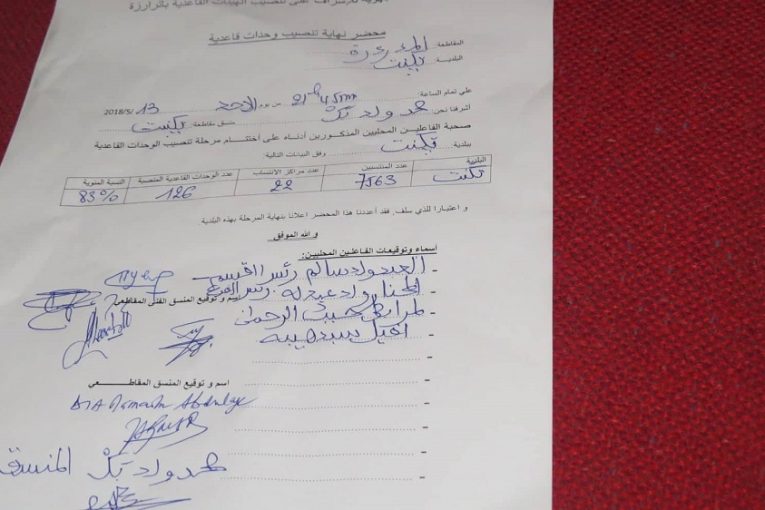 للإشراف على تنصيب الهيئات القاعدية بالترارزة
محضر نهاية تنصيب وحدات قاعدية
المقاطعة: المذرذرة
البلدية: تكنت
على تمام الساعة: 21h 45mn من يوم الأحد 13 /2018/5
أشرفنا نحن: منسق مقاطعة: تكنت
صحبة الفاعلين المحليين المذكورين أدناه على اختتام مرحلة تنصيب الوحدات القاعدية
ببلدية: تكنت وفق البيانات التالية:
البلدية عدد المنتسبين عدد مراكز الانتساب عدد الوحدات القاعدية المنصبة النسبة المئوية
تكنت 7563 22 126 83%
و اعتبارا للذي سلف، فقد أعددنا هذا المحضر اعلانا بنهاية المرحلة بهذه البلدية
و الله الموفق
أسماء وتوقيعات الفاعلين المحليين:
- ولد سالم رئيس القسم
- ولد رئيس
اسم و توقيع المنسق الفني المقاطعي
- حبيب الرحمن
-
-
اسم و توقيع المنسق المقاطعي
-
-
-
المنسق